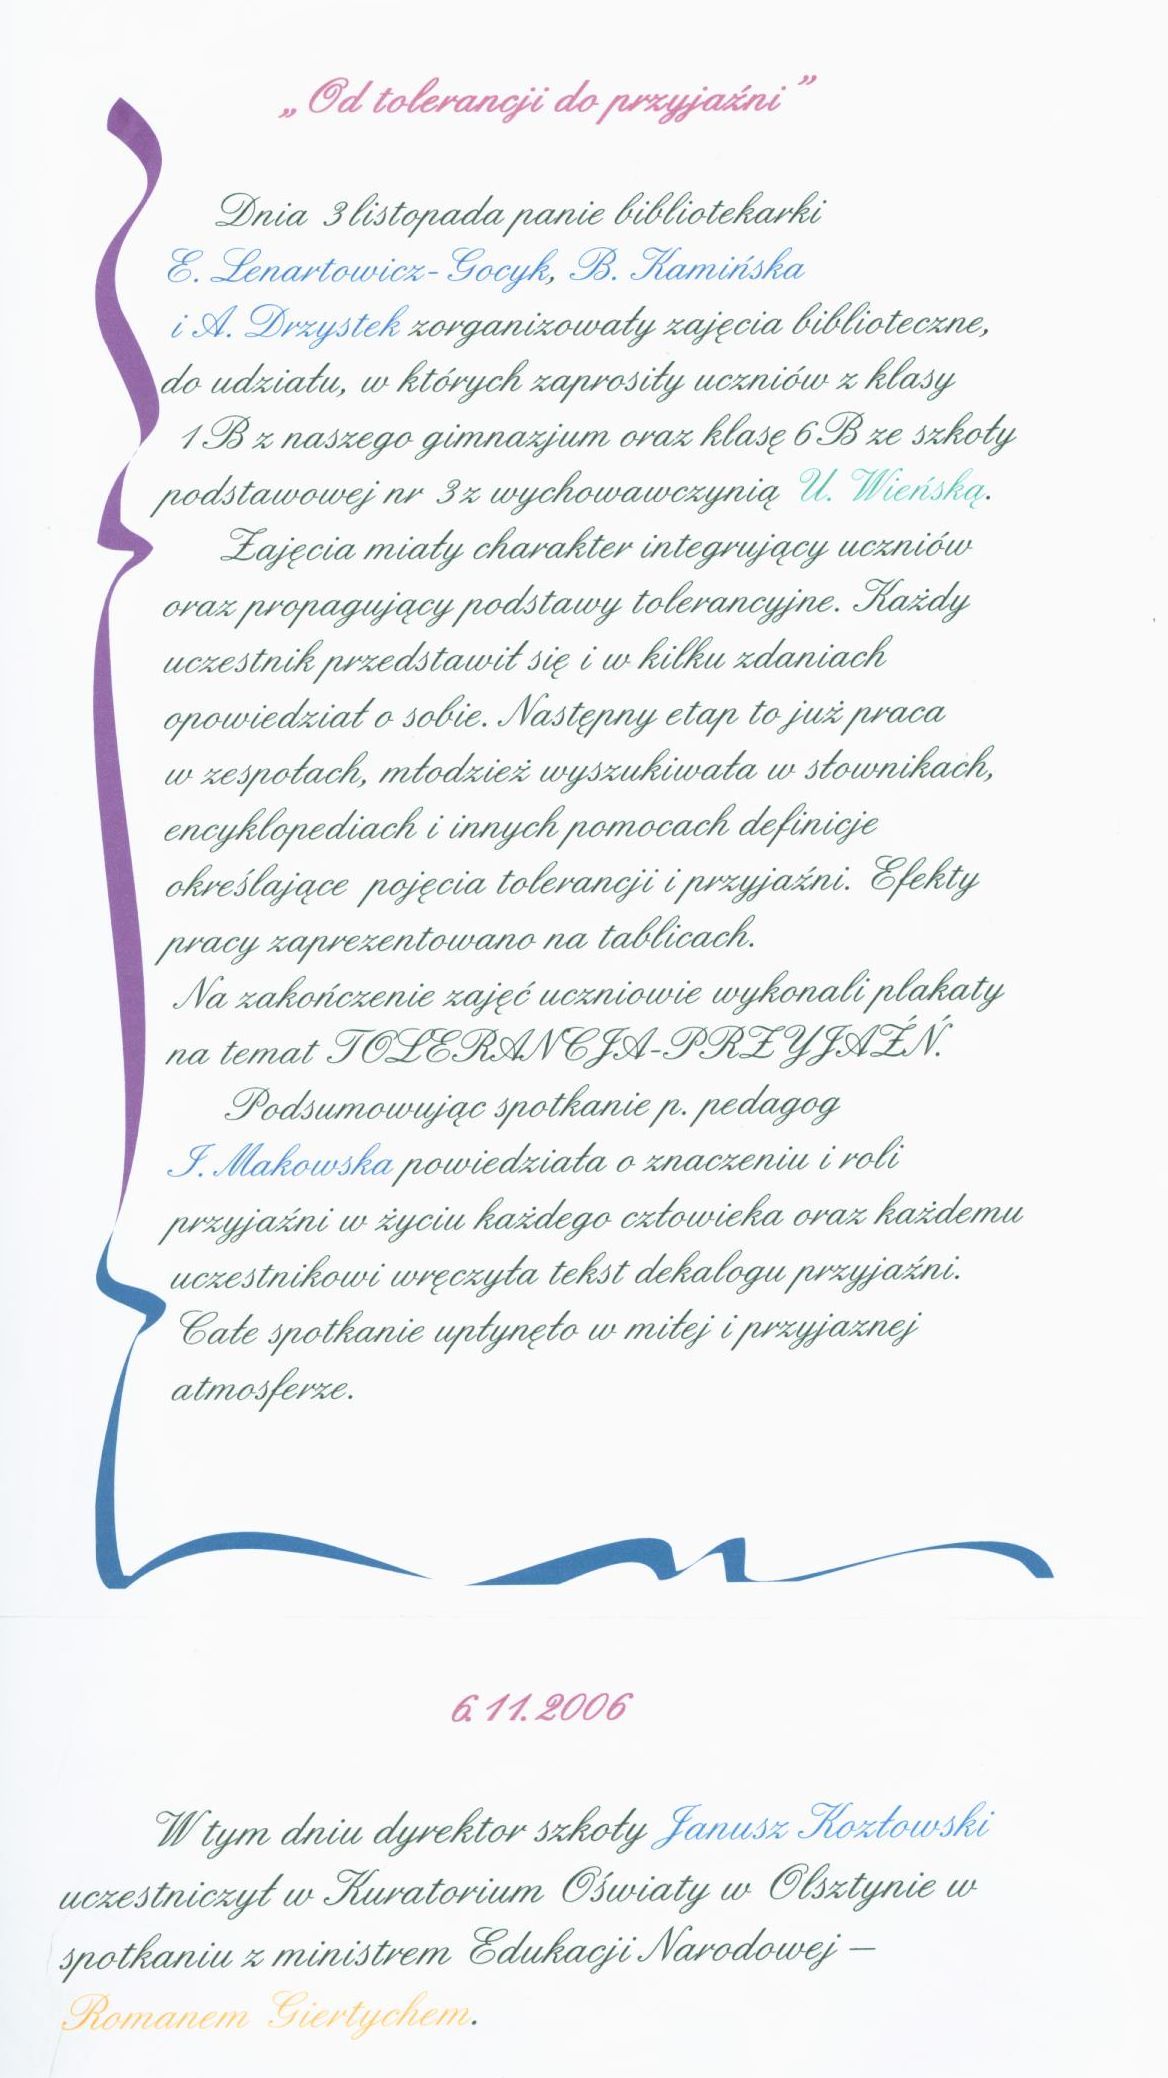 „Od tolerancji do przyjaźni”
Dnia 3 listopada panie bibliotekarki
E. Lenartowicz-Gocyk, B. Kamińska
i A. Drzystek zorganizowały zajęcia biblioteczne,
do udziału, w których zaprosiły uczniów z klasy
1 B z naszego gimnazjum oraz klasę 6 B ze szkoły
podstawowej nr 3 z wychowawczynią U. Wieńską.
Zajęcia miały charakter integrujący uczniów
oraz propagujący podstawy tolerancyjne. Każdy
uczestnik przedstawił się i w kilku zdaniach
opowiedział o sobie. Następny etap to już praca
w zespołach, młodzież wyszukiwała w słownikach,
encyklopediach i innych pomocach definicje
określające pojęcia tolerancji i przyjaźni. Efekty
pracy zaprezentowano na tablicach.
Na zakończenie zajęć uczniowie wykonali plakaty
na temat TOLERANCJA-PRZYJAŹŃ.
Podsumowując spotkanie p. pedagog
I. Makowska powiedziała o znaczeniu i roli
przyjaźni w życiu każdego człowieka oraz każdemu
uczestnikowi wręczyła tekst dekalogu przyjaźni.
Całe spotkanie upłynęło w miłej i przyjaznej
atmosferze.
6.11.2006
W tym dniu dyrektor szkoły Janusz Kozłowski
uczestniczył w Kuratorium Oświaty w Olsztynie w
spotkaniu z ministrem Edukacji Narodowej –
Romanem Giertychem.